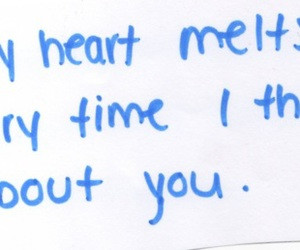 y heart melts
ry time I th
bout you.